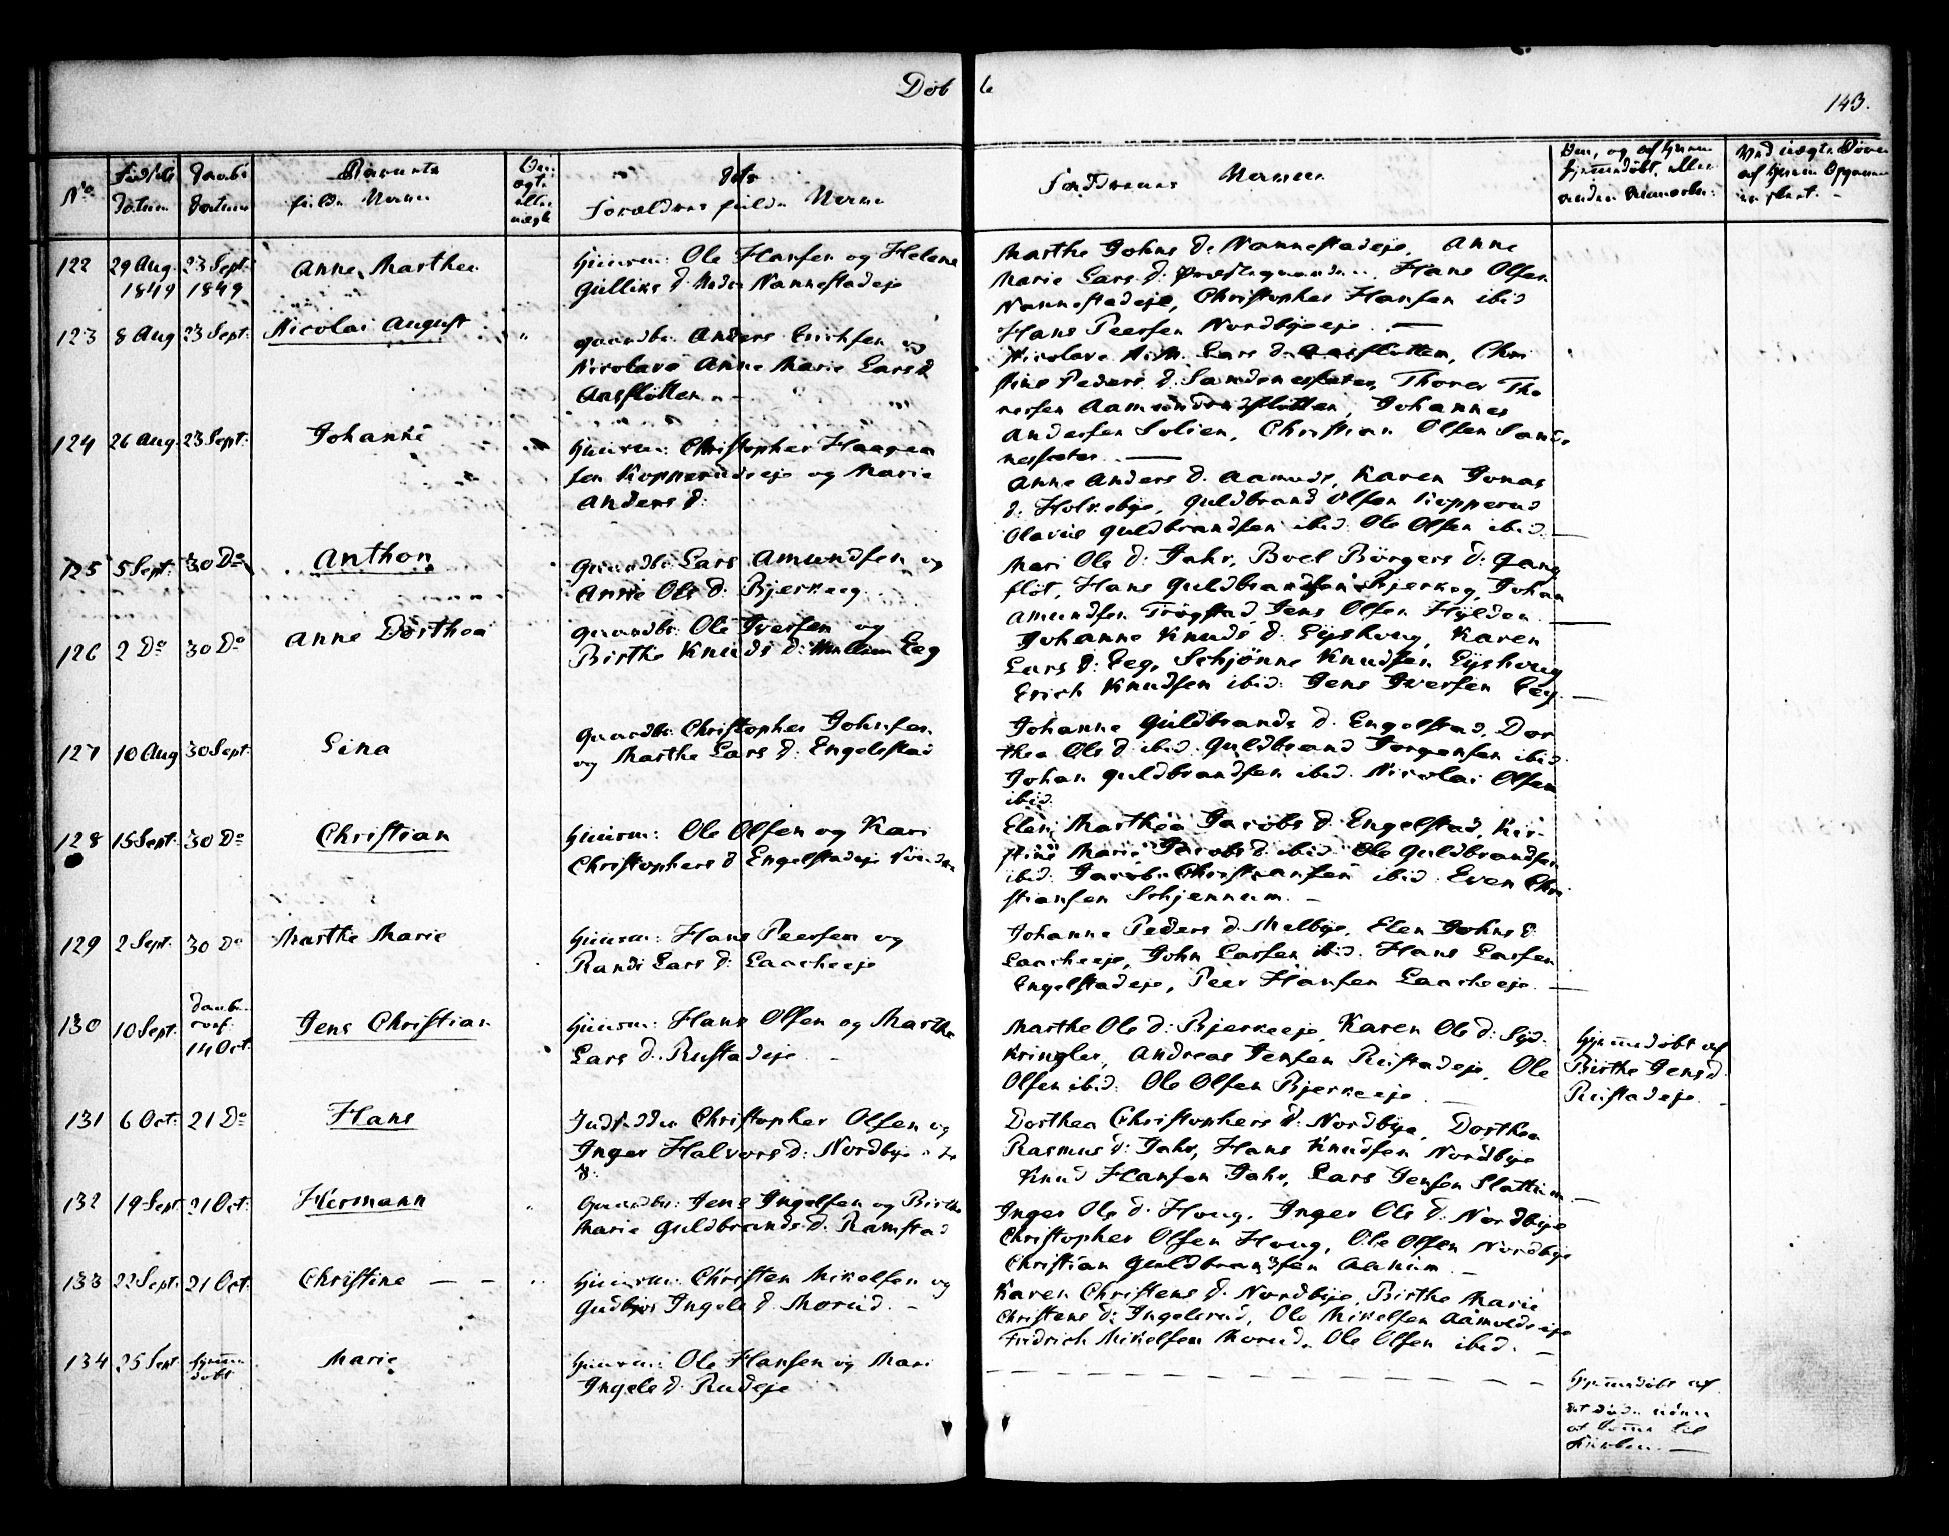 Døbte
143.
No
Fødsels
Datum
Daabs
Datum
Barnets
fulde Navne
Om
ægte
eller
uægte
dets
Forældres fulde Navne
Faddernes Navne
122 29 Aug. 23 Sept. Anne Marthea
1849 1849
Huusm: Ole Hansen og Helene
Gulliks d. Nannestadeje
Marthe Johns d. Nannestadeje, Anne
Marie Lars d. Hans Olsen
Nannestadeje, Christopher Hansen ibid
Hans Peersen Nordbyeeje —
123 8 Aug 23 Sept. Nicolai August
Gaardbr: Anders Erichsen og
Nicolave Anne Marie Lars d
Aasflötten
Nicolave Lars d. Aasflötten, Chri
stine Peders d. Sandnessæter, Thorer Tho
resen Aamundsflötten, Johannes
Andersen Solien, Christian Olsen Sand
nessæter. —
124 26 Aug. 23 Sept. Johanne
Huusm: Christopher Haagen
sen Kopperudseje og Marie
Anders d.
Anne Anders d. Aamods, Karen Jonas
d. Holsebye, Guldbrand Olsen Kopperud
Olavus Guldbrandsen ibid. Ole Olsen ibid. —
125 5 Sept. 30 Do Anthon
Gaardbr: Lars Amundsen og
Anne Ols d. Bjerkeeg
Mari Ols d. Jahr, Boel Börgers d. Gang
flöt, Hans Guldbrandsen Bjerkeg, Johan
Amundsen Trögstad, Jens Olsen Hylden —
126 2 Do 30 Do Anne Dorthea
Gaardbr: Ole Iversen og
Birthe Knuds d. Mellem Eeg
Johanne Knuds d. Eyshoug, Karen
Lars d. Eeg, Schjönne Knudsen Eyshoug
Erich Knudsen ibid: Jens Iversen Eeg. —
127 10 Aug 30 Sept. Lina
Gaardbr: Christopher Johnsen
og Marthe Lars d. Engelstad
Johanne Guldbrands d. Engelstad, Dor
thea Ols d. ibid. Guldbrand Jorgensen ibid
Johan Guldbrandsen ibid. Nicolai Olsen
ibid.
128 15 Sept. 30 Do Christian
Huusm: Ole Olsen og Kari
Christophers d Engelstadeje
Elen Marthea Jacobs d. Engelstad, Kir
stine Marie Jacobs d ibid Ole Guldbrandsen
ibid. Jacob Christiansen ibid. Even Chri
stiansen Schjennum. —
129 2 Sept. 30 Do Marthe Marie
Huusm: Hans Peersen og
Randi Lars d. Laacheeje
Johanne Peders d. Melbye, Elen Johns d
Laacheeje, John Larsen ibid. Hans Larsen
Engelstadeje, Peer Hansen Laacheeje. —
130 10 Sept. Daab
conf.
14 Oct. Jens Christian
Huusm: Hans Olsen og Marthe
Lars d. Rustadeje —
Marthe Ols d. Bjerkeeje, Karen Ols d. Syd
Kringler, Andreas Jensen Rustadeje, Ole
Olsen ibid. Ole Olsen Bjerkeeje —
Hjemmedöbt af
Birthe Jens d.
Rustadeje. —
131 6 Oct. 21 Do Hans
Christopher Olsen og
Inger Halvors d. Nordbye
Dorthea Christophers d. Nordbye, Dorthea
Rasmus d. Jahr, Hans Knudsen Nordbye
Knud Hansen Jahr, Lars Jensen Slattum —
132 19 Sept 21 Oct. Hermann
Gaardbr: Jens Ingelsen og Birthe
Marie Guldbrands d. Ramstad
Inger Ols d. Houg, Inger Ols d. Nordbye
Christopher Olsen Houg, Ole Olsen Nordbye
Christian Guldbrandsen Aanum —
133 22 Sept. 21 Oct. Christine — —
Huusm: Christen Mikelsen og
Gudbjor Ingels d. Morud. —
Karen Christens d. Nordbye, Birthe Marie
Christens d: Ingelsrud, Ole Mikelsen Aamoldseje
Fridrich Mikelsen Morud. Ole Olsen ibid. —
134 25 Sept. hjemme
döbt Marie
Huusm: Ole Hansen og Mari
Ingels d. Rudeje
— — — — — — — —
Hjemmedöbt af